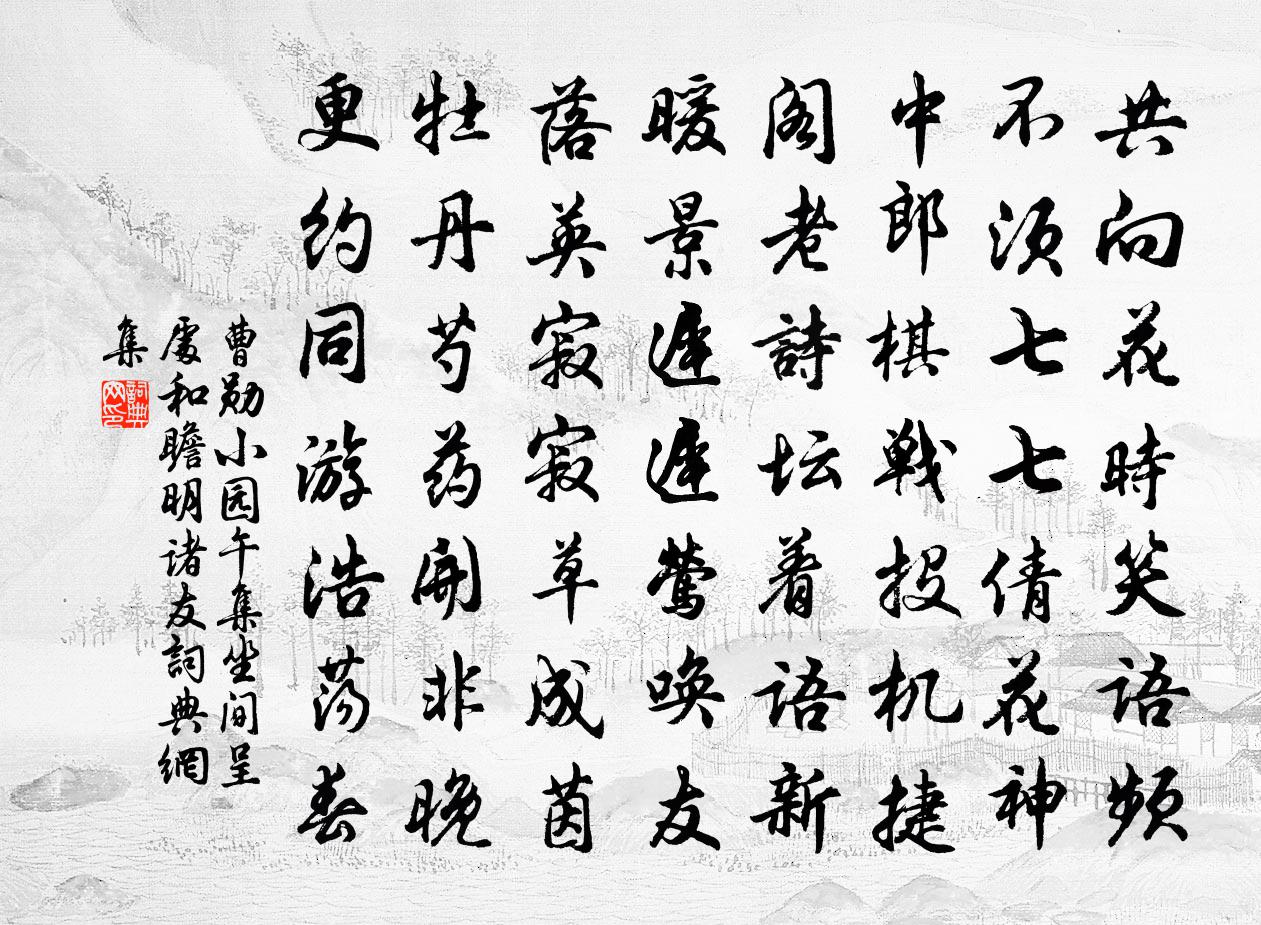 共向花時笑语頻
不须七七倩花神
中郎棋戦投机捷
阁老詩坛着语新
暖景遲遲莺唤友
落英寂寂草成茵
牡丹芍药開非晚
更约同游浩荡春
曹勋小园午集坐间呈
處和瞻明诸友詞典網
集
詞典
网印